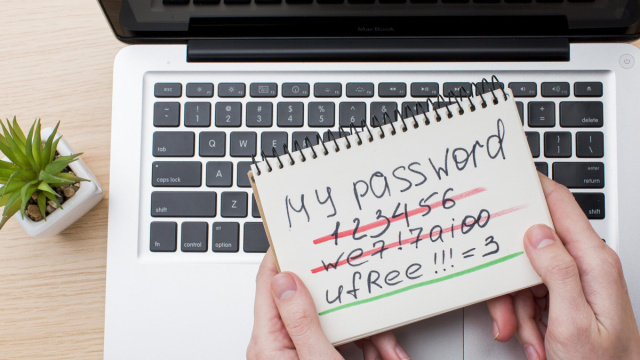 MacBook
esc
! 1 @ 2 # 3 $ 4 % 5 ^ 6
delete
tab Q W E
caps lock A
return
shift Z
shift
fn control option
My password
123456
we7!7aioo
ufRee!!!=3